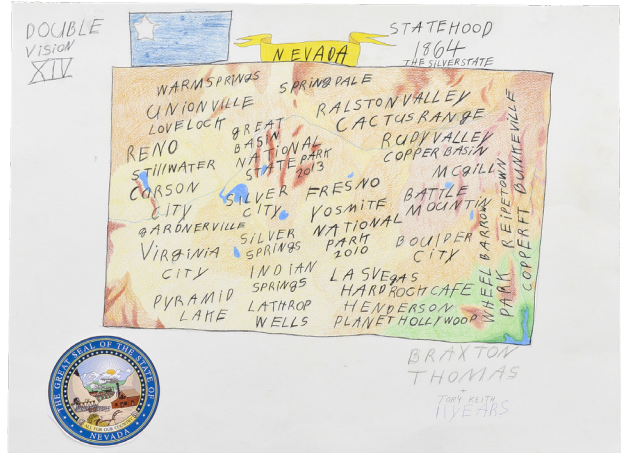 DOUBLE
VISION
XIV
NEVADA
STATEHOOD
1864
THE SILVER STATE
WARMSPRINGS
SPRINGDALE
UNIONVILLE
LOVELOCK
RALSTON VALLEY
CACTUS RANGE
GREAT
BASIN
NATIONAL
STATE PARK
2013
RENO
STILLWATER
RUDY VALLEY
COPPER BASIN
MCGILL
CARSON
CITY
SILVER
CITY
FRESNO
YOSMITE
NATIONAL
PARK
2010
BATTLE
MOUNTIN
GARDNERVILLE
VIRGINIA
CITY
SILVER
SPRINGS
BOULDER
CITY
INDIAN
SPRINGS
LAS VEGAS
HARD ROCK CAFE
HENDERSON
PLANET HOLLYWOOD
PYRAMID
LAKE
LATHROP
WELLS
WHEEL BARROW
PARK REIPETOWN
COPPERFT BUNKEVILLE
BRAXTON
THOMAS
+
TOBY KEITH
11 YEARS
THE GREAT SEAL OF THE STATE OF
NEVADA
ALL FOR OUR COUNTRY